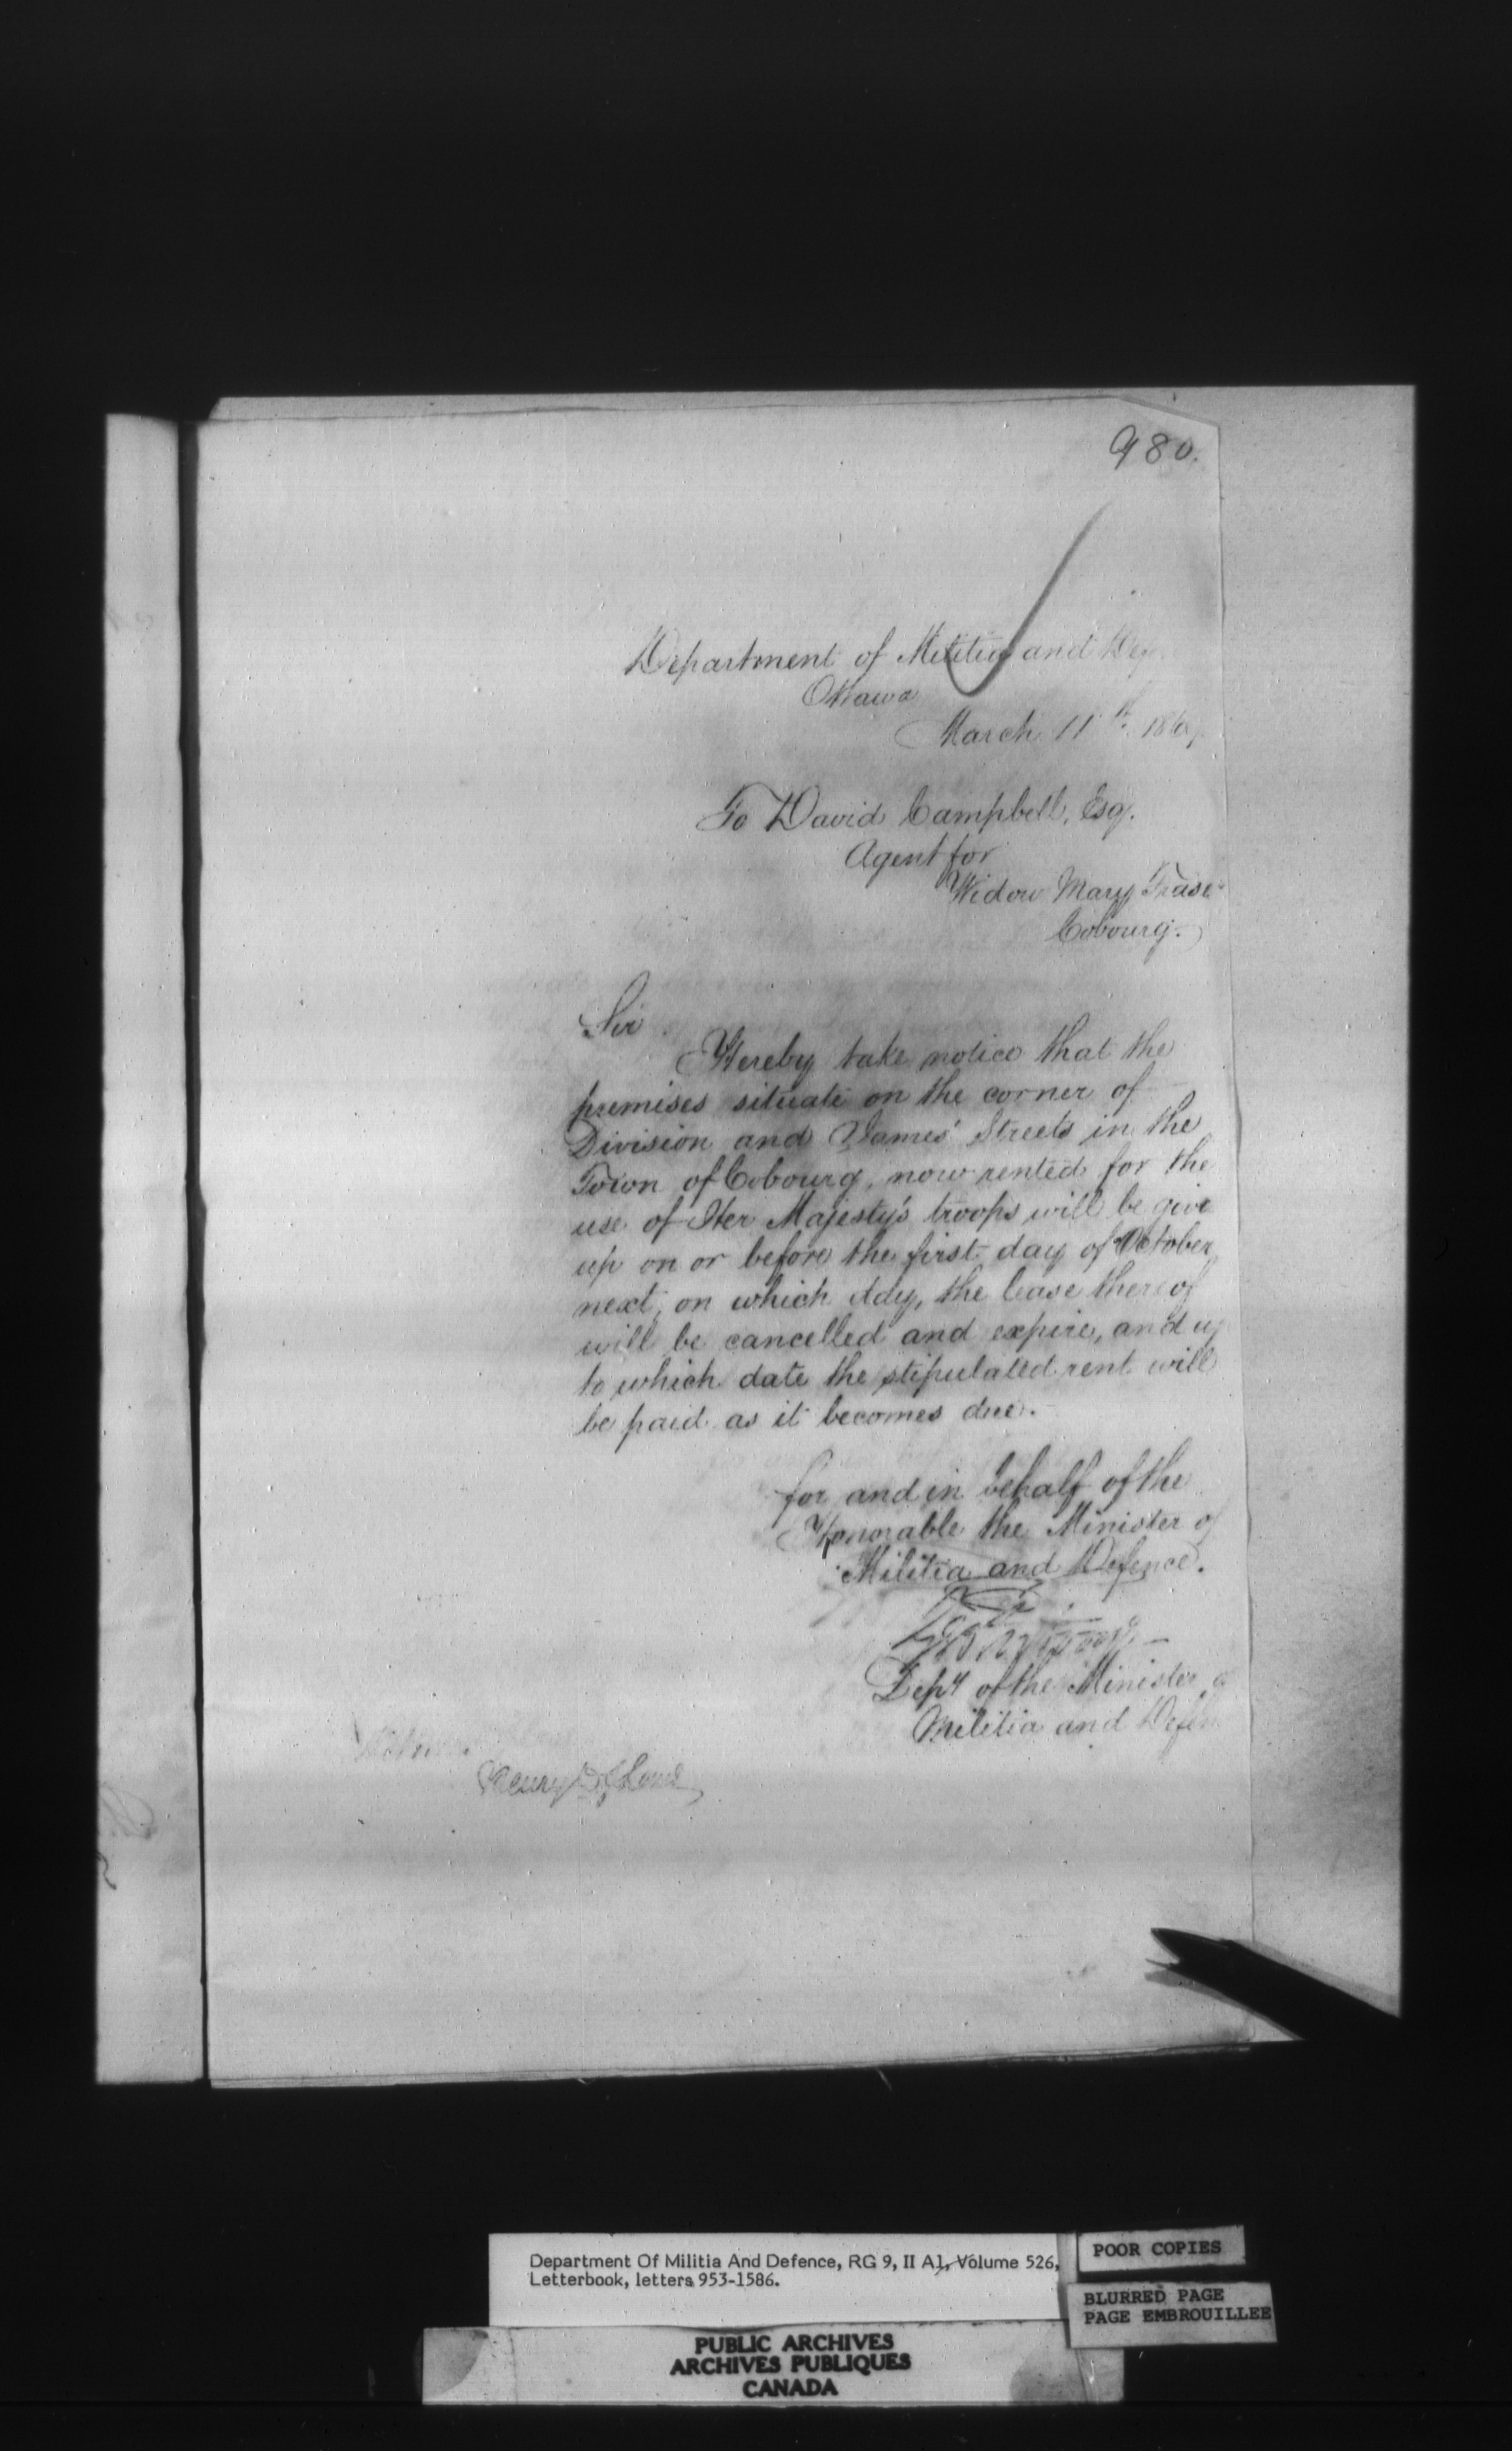 980.
Department of Militia and Def
Ottawa
March 11th 186
To David Campbell, Esq.
Agent for
Widow Mary Frase
Cobourg.
Sir
Hereby take notice that the
premises situate on the corner of
Division and James' Streets in the
Town of Cobourg, now rented for the
use of Her Majesty's troops will be give
up on or before the first day of October
next, on which day, the lease thereof
will be cancelled and expire, and up
to which date the stipulated rent will
be paid as it becomes due.
for and in behalf of the
Honorable the Minister of
Militia and Defence.
Depy of the Minister o
Militia and Defen
Henry
Department Of Militia And Defence, RG 9, II A1, Volume 526,
Letterbook, letters 953-1586.
POOR COPIES
BLURRED PAGE
PAGE EMBROUILLEE
PUBLIC ARCHIVES
ARCHIVES PUBLIQUES
CANADA